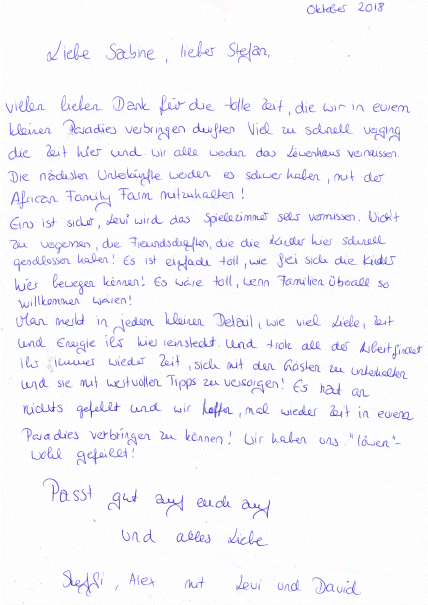 Oktober 2018
Liebe Sabine, lieber Stefan,
vielen lieben Dank für die tolle Zeit, die wir in eurem
kleinen Paradies verbringen durften. Viel zu schnell verging
die Zeit hier und wir alle werden das Löwenhaus vermissen.
Die nächsten Unterkünfte werden es schwer haben, mit der
African Family Farm mitzuhalten!
Eins ist sicher, Levi wird das Spielezimmer sehr vermissen. Nicht
zu vergessen, die Freundschaften, die die Kinder hier schnell
geschlossen haben! Es ist einfach toll, wie frei sich die Kinder
hier bewegen können! Es wäre toll, wenn Familien überall so
willkommen wären!
Man merkt in jedem kleinen Detail, wie viel Liebe, Zeit
und Energie ihr hier reinsteckt. Und trotz all der Arbeit findet
ihr immer wieder Zeit, sich mit den Gästen zu unterhalten
und sie mit wertvollen Tipps zu versorgen! Es hat an
nichts gefehlt und wir hoffen, mal wieder Zeit in eurem
Paradies verbringen zu können! Wir haben uns "löwen"-
wohl gefühlt!
Passt gut auf euch auf
und alles Liebe
Steffi, Alex mit Levi und David